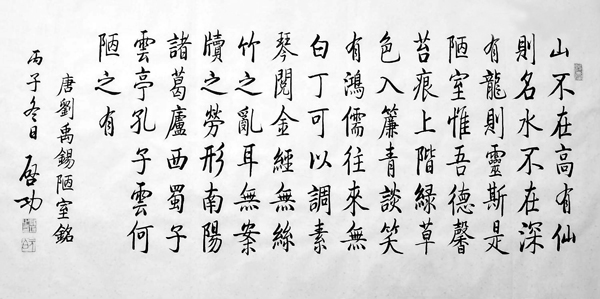 山不在高有仙
則名水不在深
有龍則靈斯是
陋室惟吾德馨
苔痕上階緑草
色入簾青談笑
有鴻儒往來無
白丁可以調素
琴閱金經無絲
竹之亂耳無案
牘之勞形南陽
諸葛廬西蜀子
雲亭孔子雲何
陋之有
唐劉禹錫陋室銘
丙子冬日 啓功